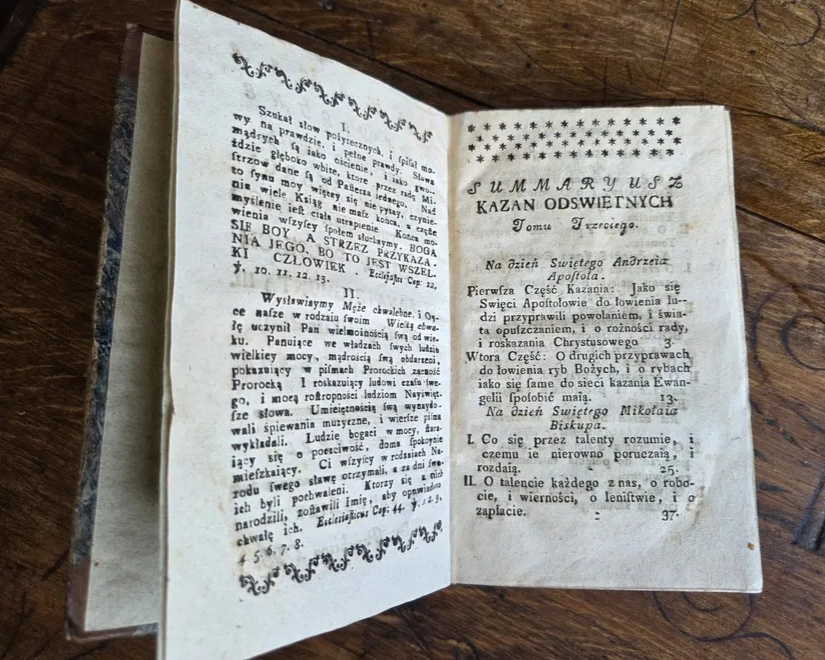 I.
Szukał słow pożytecznych, i ſpiſał mo-
wy na prawdzie, i pełne prawdy. Słowa
mądrych ſą iako ościenie, i iako gwo-
ździe głęboko wbite, ktore przez radę Mi-
ſtrzow dane ſą od Paſterza iednego. Nad
to ſynu moy więcey ſię nie pytay, czynie-
nia wiele Kſiąg nie maſz końca, a częſte
myślenie ieſt ciała utrapienie. Końca mo-
wienia wſzyſcy ſpołem ſłuchaymy. BOGA
SIĘ BOY, A STRZEZ PRZYKAZA-
NIA JEGO, BO TO JEST WSZEL-
KI CZŁOWIEK. Eccleſiaſtes Cap: 12,
ỳ. 10. 11. 12. 13.
II.
Wyſławiaymy Męże chwalebne, i Oy-
ce naſze w rodzaiu ſwoim Wielką chwa-
łę uczynił Pan wielmożnością ſwą od wie-
ku. Panuiące we władzach ſwych ludzie
wielkiey mocy, mądrością ſwą obdarzeni,
pokazuiący w piſmach Prorockich zacność
Prorocką I roſkazuiący ludowi czaſu ſwe-
go, i mocą roſtropności ludziom Nayświęt-
ſze słowa. Umieiętnością ſwą wynaydo-
wali śpiewania muzyczne, i wierſze piſma
wykładali. Ludzie bogaci w mocy, ſtara-
iący ſię o poczciwość, doma ſpokoynie
mieſzkaiący. Ci wſzyſcy w rodzaiach Na-
rodu ſwego sławę otrzymali, a za dni ſwo-
ich byli pochwaleni. Ktorzy ſię z nich
narodzili, zoſtawili Imię, aby opowiadano
chwałę ich. Eccleſiaſticus Cap: 44. ỳ. 1 2. 3.
4 5. 6. 7. 8.
SUMMARYUSZ
KAZAN ODSWIETNYCH
Tomu Trzeciego.
Na dzień Swiętego Andrzeia
Apoſtoła.
Pierwſza Część Kazania: Jako się
Swięci Apoſtołowie do łowienia lu-
dzi przyprawili powołaniem, i świa-
ta opuſzczaniem, i o rożności rady,
i roskazania Chrystusowego 3.
Wtora Część: O drugich przyprawach
do łowienia ryb Bożych, i o rybach
iako się ſame do sieci kazania Ewan-
gelii ſpoſobić maią. 13.
Na dzień Swiętego Mikołaia
Biskupa.
I. Co się przez talenty rozumie, i
czemu ie nierowno poruczaią, i
rozdaią. 25.
II. O talencie każdego z nas, o robo-
cie, i wierności, o leniſtwie, i o
zapłacie. 37.